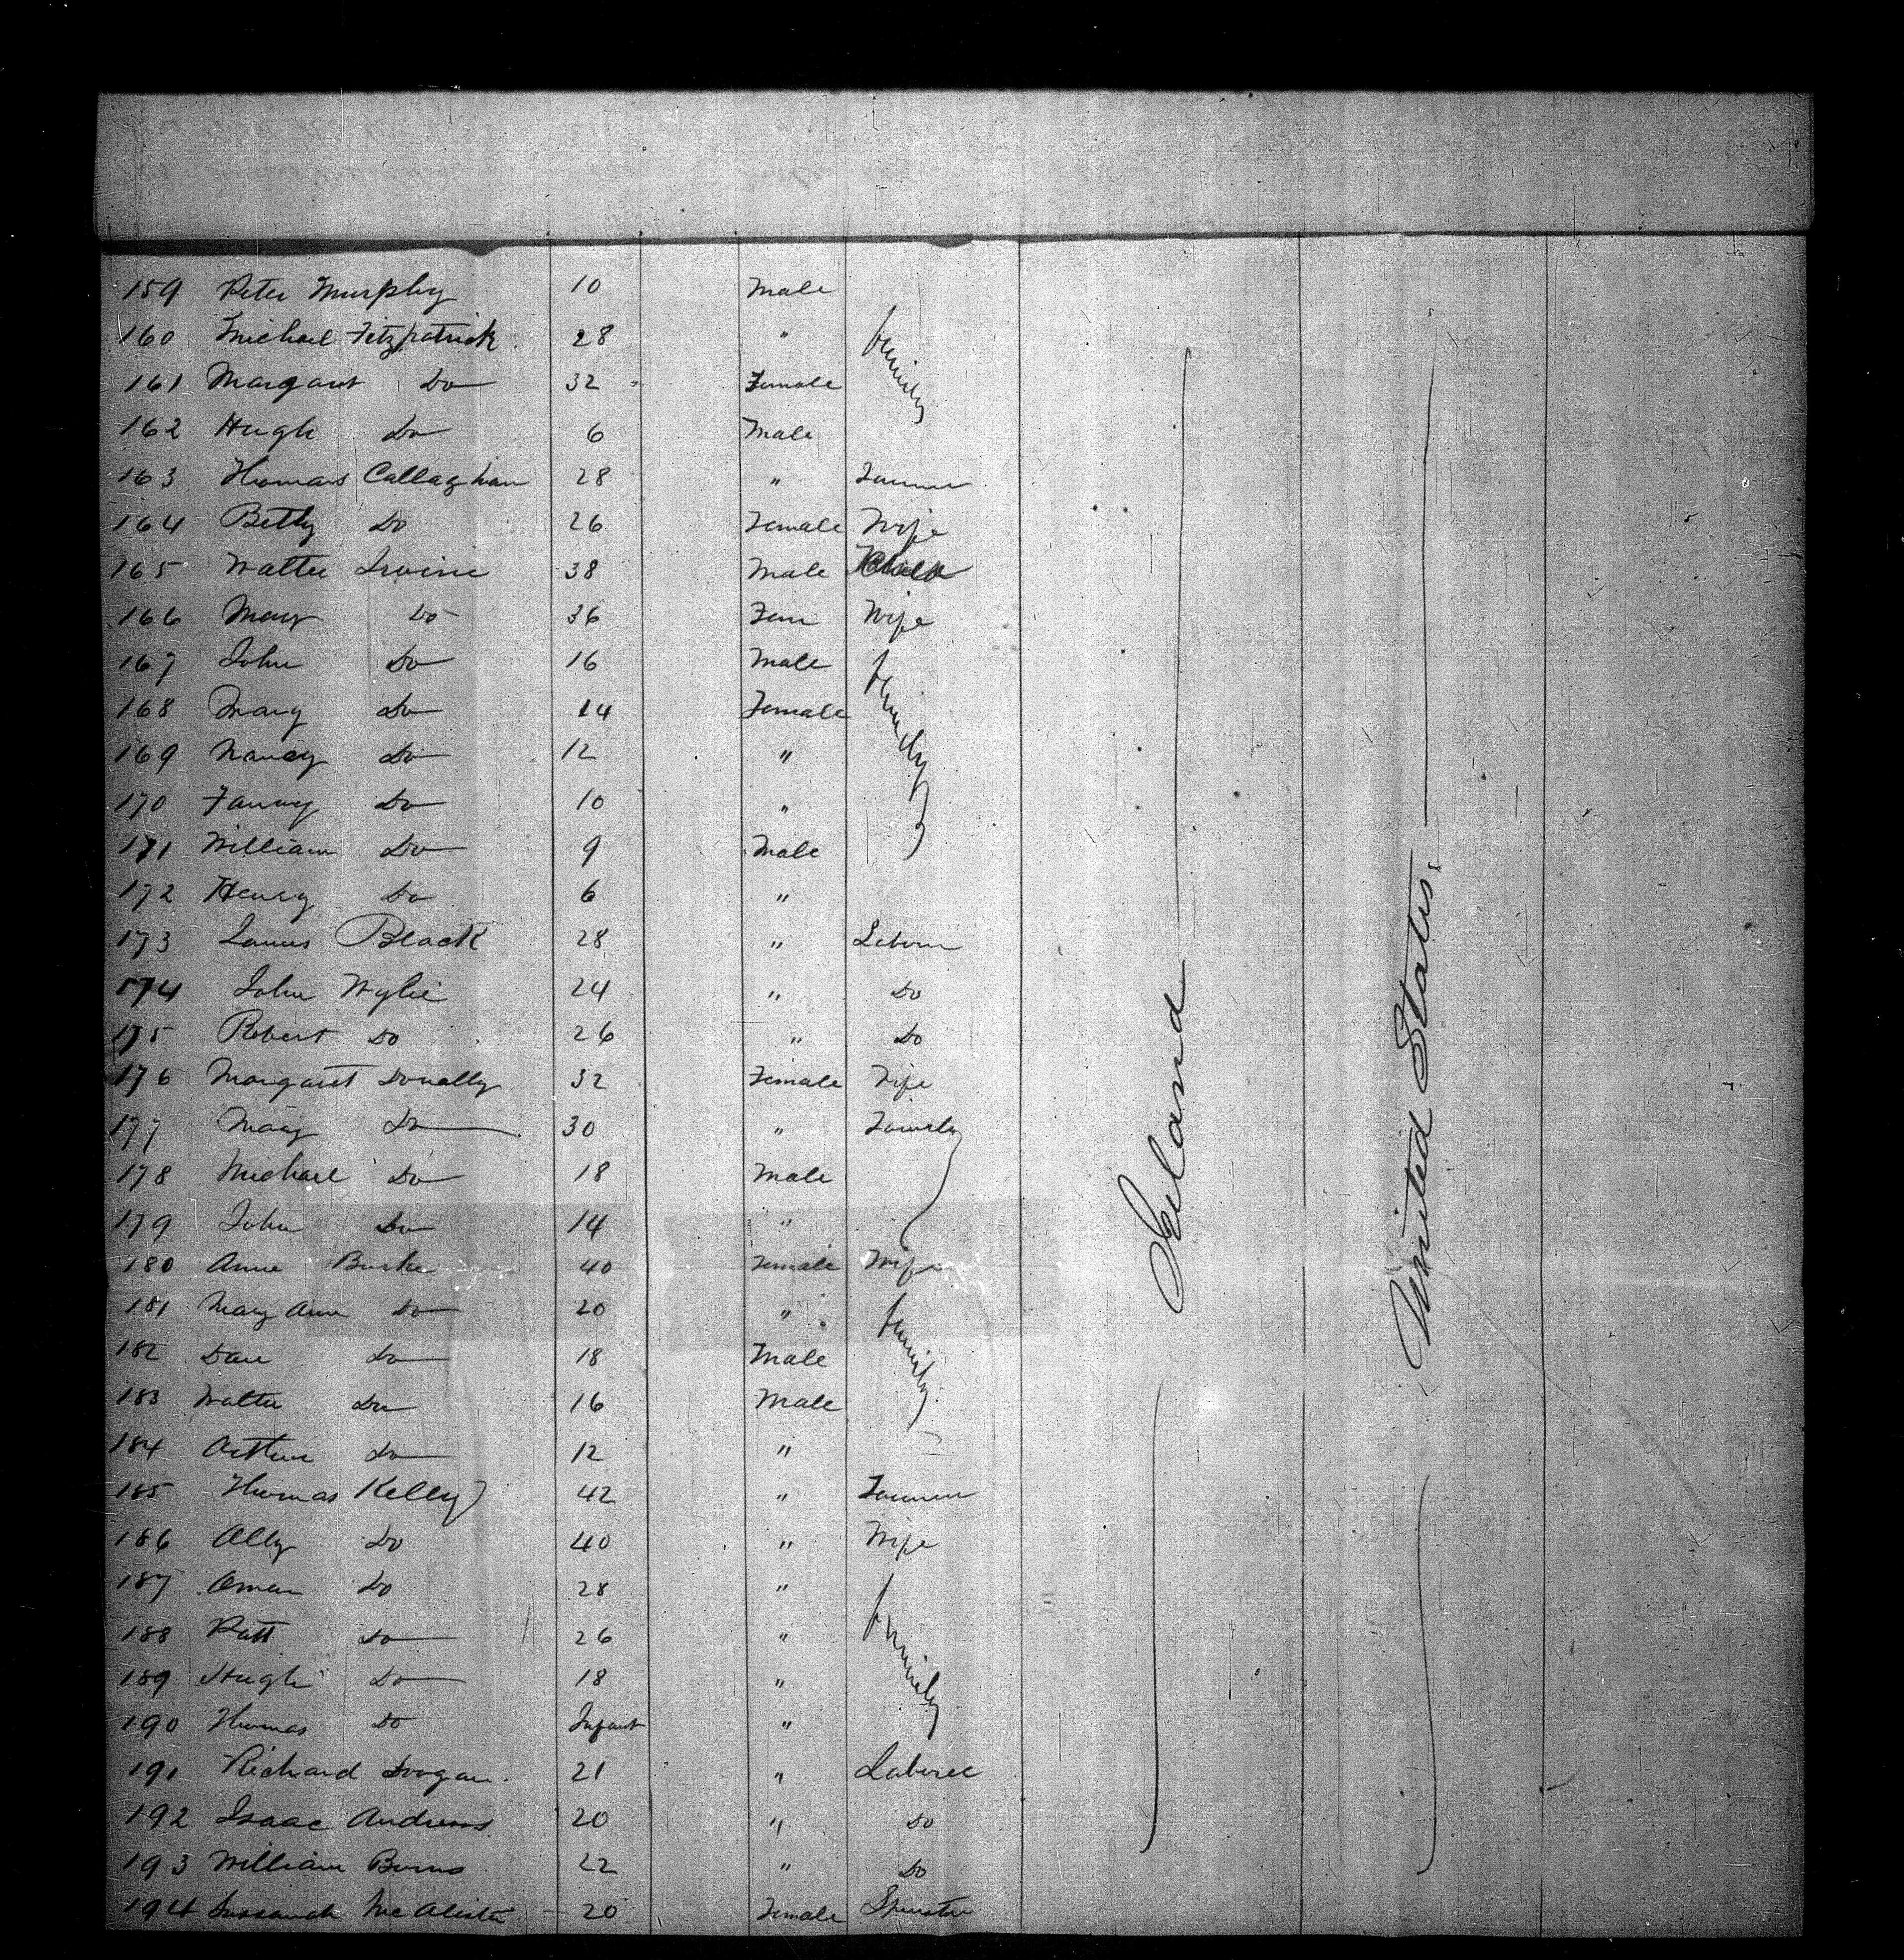 159 Peter Murphy 10 Male
160 Michael Fitzpatrick 28 " family
161 Margaret Do 32 Female
162 Hugh Do 6 Male
163 Thomas Callaghan 28 " Farmer
164 Betty Do 26 Female Wife
165 Walter Irvine 38 Male
166 Mary Do 36 Fem Wife
167 John Do 16 Male family
168 Mary Do 14 Female
169 Nancy Do 12 "
170 Fanny Do 10 "
171 William Do 9 Male
172 Henry Do 6 "
173 James Black 28 " Laborer
174 John Wylie 24 " Do
175 Robert Do 26 " Do
176 Margaret Donally 32 Female Wife
177 Mary Do 30 " Family
178 Michael Do 18 Male
179 John Do 14 "
180 Anne Burke 40 Female Wife
181 Mary Ann Do 20 " family
182 Dan Do 18 Male
183 Walter Do 16 Male
184 Arthur Do 12 "
185 Thomas Kelly 42 " Farmer
186 Ally Do 40 " Wife
187 Do 28 " family
188 Patt Do 26 "
189 Hugh Do 18 "
190 Thomas Do Infant "
191 Richard Dogan 21 " Laborer
192 Isaac Andrews 20 " Do
193 William Burns 22 " Do
194 Sussanah McAlister 20 Female Spinster
Ireland
United States